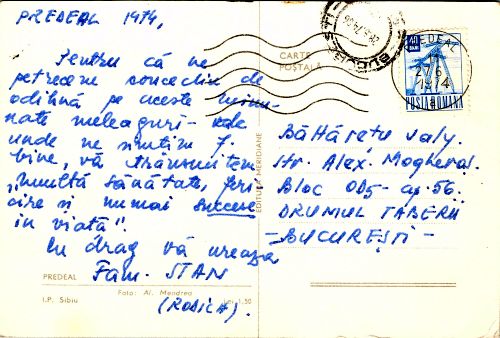 PREDEAL 1974,
Pentru că ne
petrecem concediu de
odihnă pe aceste minu-
nate meleaguri -
unde ne simțim f.
bine, vă transmitem
"multă sănătate, feri
cire și numai succese
în viață".
Cu drag vă urează
Fam. STAN
(RODICA).
PREDEAL
Foto: Al. Mendrea
I.P. Sibiu
Lei 1,50
EDITURA MERIDIANE
CARTE
POȘTALĂ
BUCUREȘTI
40
BANI
POSTA ROMANA
PREDEAL
1974
Băhărețu Valy.
Str. Alex. Moghioroș.
Bloc OD5- ap. 56.
DRUMUL TABEREI
-BUCUREȘTI-